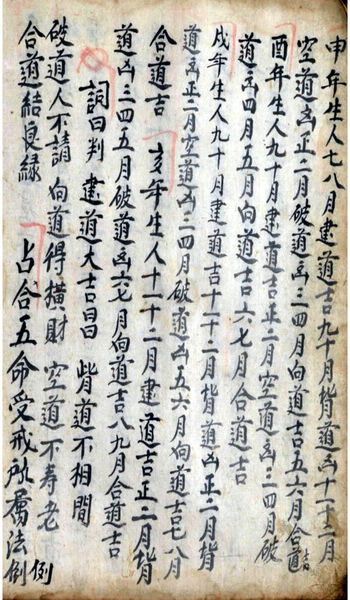 申年生人七八月建道吉九十月背道凶十一十二月
空道凶正二月破道凶三四月向道吉五六月合道吉
酉年生人九十月建道吉正二月空道凶三四月破
道凶四五月向道吉六七月合道吉
戌年生人九十月建道吉十一十二月背道凶正二月背
道凶正二月空道凶三四月破道凶五六月向道吉七八月
合道吉 亥年生人十一十二月建道吉正二月背
道凶三四五月破道凶六七月向道吉八九月合道吉
詞曰判 建道大吉昌 背道不相間
破道人不請 向道得橫財 空道不寿老
合道結良縁
占合五命受戒所属法例
例